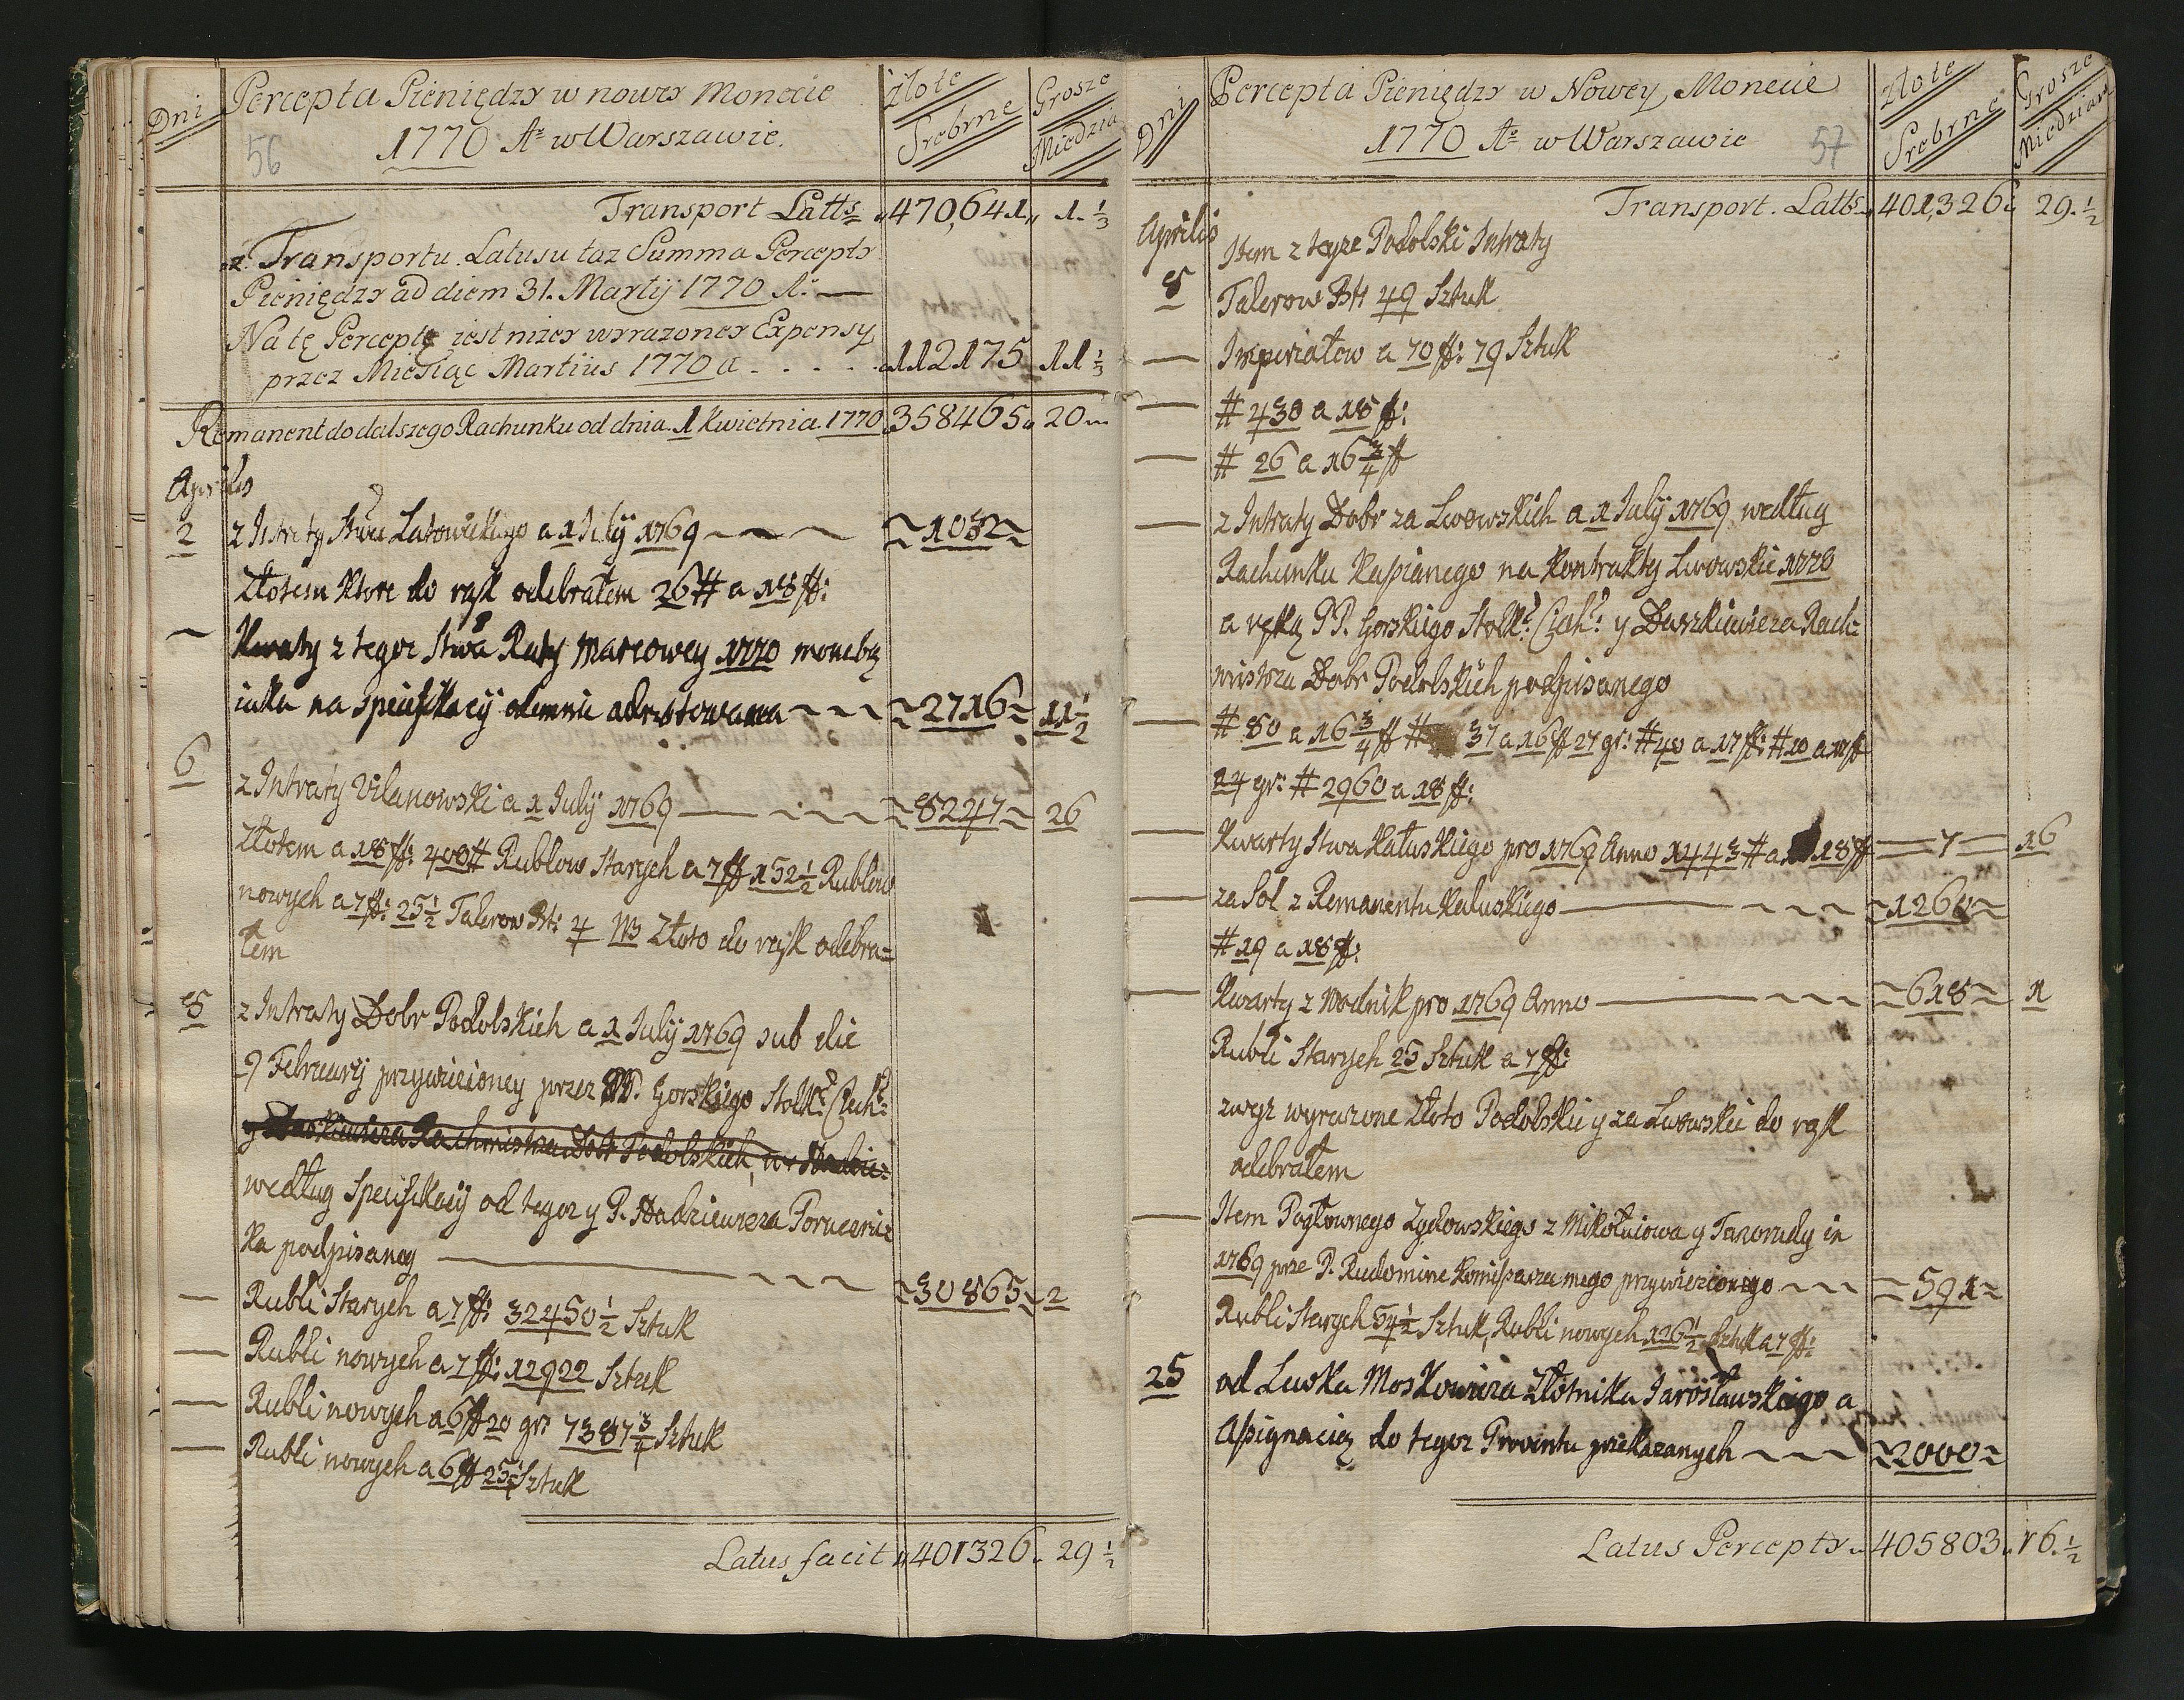 Dni
Percepta Pieniędzy w nowey Monecie
Złote Srebrne
Grosze Miedzia
56
1770 Aº w Warszawie.
Transport Latts 470,641 1. 1/3
z Transportu Latusu taz Summa Percepty
Pieniędzy ad diem 31. Martij 1770 A: —
Na tę Perceptę iest nizey wyrazoney Expensy
przez Miesiąc Martius 1770 a . . . . . 112175 11 1/3
Remanent do dalszego Rachunku od dnia 1 Kwietnia 1770 358465 20
Aprilis
2 z Intraty Stwa Latowickiego a 1 July 1769 ~1032~
Złotem Ktore do rąk odebrałem 26 # a 18 ff:
— Kwarty z tegoz Stwa Raty Marcowey 1770 monetą
iaka na specifikacij odemnie adnotowana ~ ~ ~ 2716 11 1/2
6 z Intraty Vilanowski a 1 July 1769 — 8247 26
Złotem a 18 ff: 400 # Rublow Starych a 7 ff 152 1/2 Rublow
nowych a 7 ff: 25 1/2 Talerow Bt: 4 NB Złoto do rąk odebra=
łem
8 z Intraty Dobr Podolskich a 1 July 1769 sub die
9 February przywiezioney przez Gorskiego Stolk: Ciech:
według specifikacij od tegoz y P. Hadziewicza Poruczni=
ka podpisaney — 30865 2
— Rubli Starych a 7 ff: 32450 1/2 Sztuk
— Rubli nowych a 7 ff: 12922 Sztuk
— Rubli nowych a 6 ff 20 gr: 7387 3/4 Sztuk
— Rubli nowych a 6 ff 25 Sztuk
Latus facit 401326 29 1/2
Dni
Percepta Pieniędzy w Nowey Monecie
Złote Srebrne
Grosze Miedziane
1770 Aº w Warszawie
57
Transport. Latts 401,326 29. 1/2
Aprilis
8 Item z teyze Podolski Intraty
Talerow Bt: 49 Sztuk
— Imperiałow a 70 ff: 79 Sztuk
— # 430 a 18 ff:
— # 26 a 16 3/4 ff
— z Intraty Dobr za Lwowskich a 1 July 1769 według
Rachunku Kapianego na Kontrakty Lwowskie 1770
a ręką PP. Gorskiego Stolk: Ciech: y Daszkiewicza Rach=
mistrza Dobr Podolskich podpisanego
— # 80 a 16 3/4 ff # 37 a 16 ff 27 gr: # 40 a 17 ff: # 10 a 17 ff
24 gr: # 2960 a 18 ff:
— Kwarty Stwa Kałuskiego pro 1769 Anno 1443 # a 18 ff — 7 — 16
— za Sol z Remanentu Kaluskiego — 1260
# 19 a 18 ff:
— Kwarty z Wodnik pro 1769 Anno — 618 1
Rubli Starych 25 Sztuk a 7 ff:
zwyz wyrazone Złoto Podolskie y za Lwowskie do rąk
odebrałem
— Item Pogłownego Zydowskiego z Mikołaiowa y Tarorudy in
1769 prze P. Rudomine Komissarza mego przywiezionego ~ ~ 591
Rubli Starych 54 1/2 Sztuk, Rubli nowych 116 1/2 Sztuk a 7 ff:
25 od Leyka Moskowicza Złotnika Jarosławskiego a
Assignacią do tegoz Proventu przekazanych ~ ~ ~ 2000
Latus Percepty 405803 16. 1/2